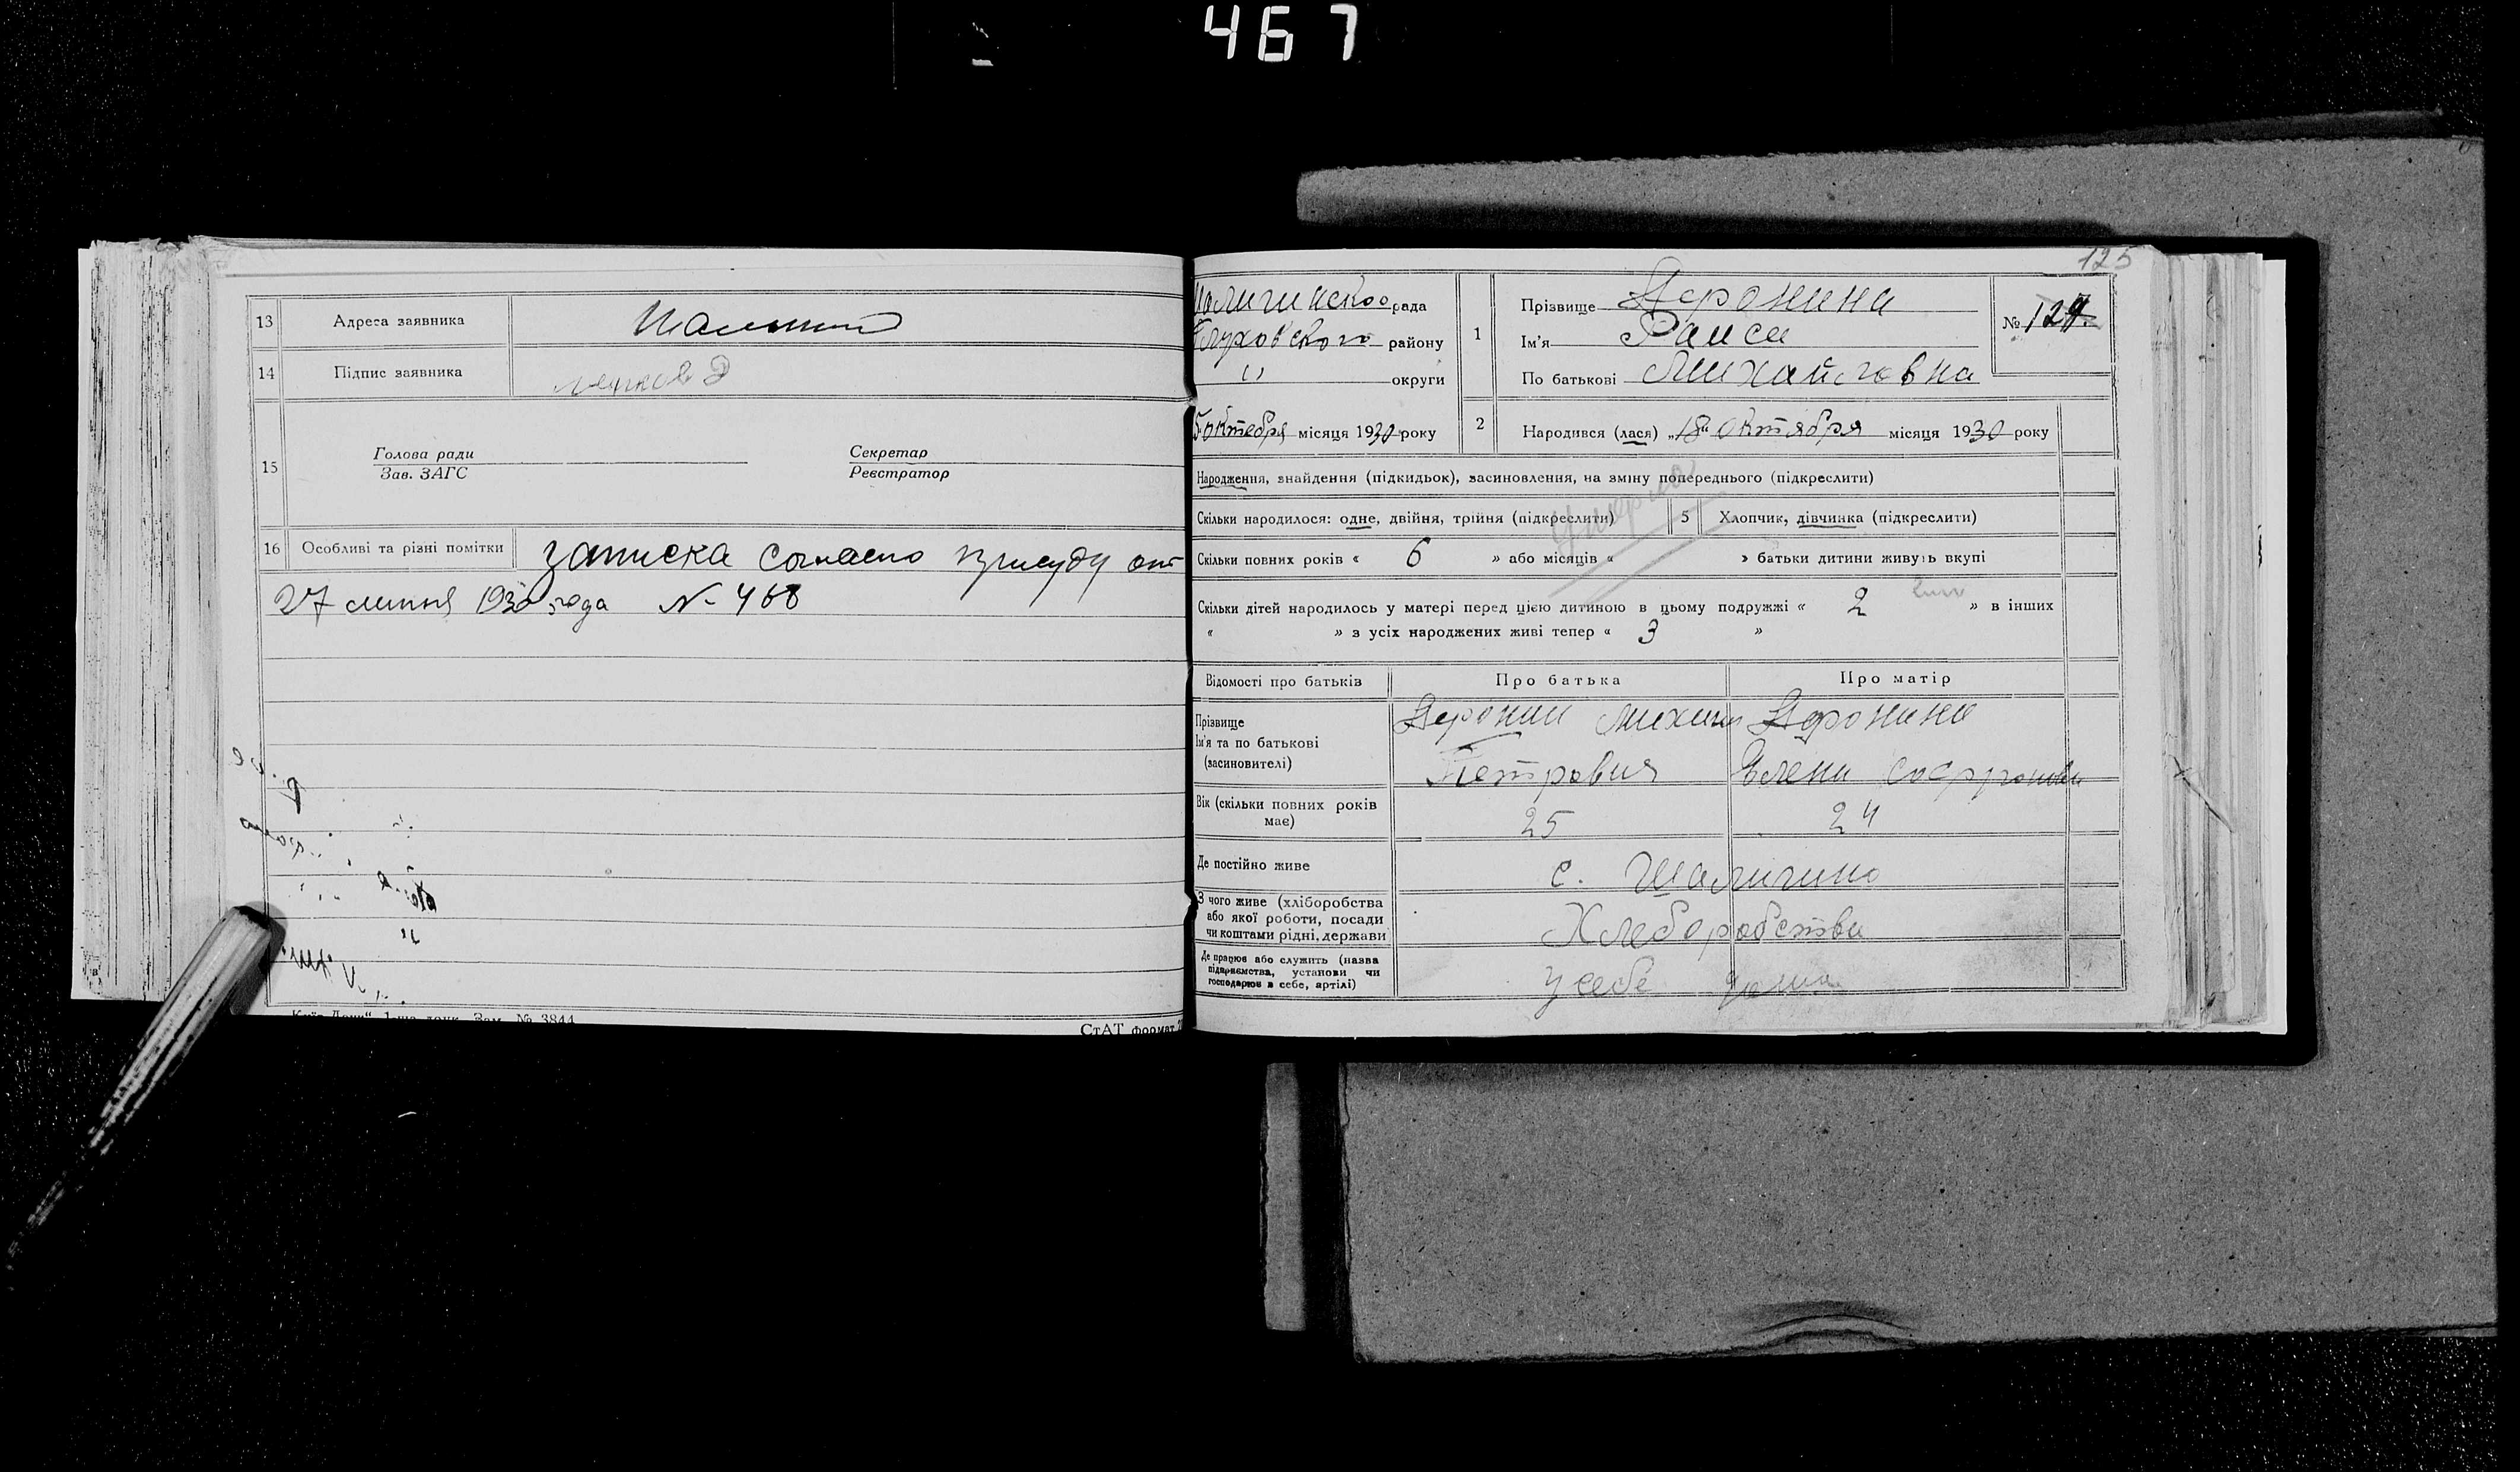 467
13 Адреса заявника
14 Підпис заявника
15 Голова ради Секретар
Зав. ЗАГС Реєстратор
16 Особливі та різні помітки записка согласно присуду от
27 липня 1930 года № 468
Зам. № 3844
СтАТ формат
125
рада
Глуховского району
" округи
октября місяця 1930 року
1 Прізвище
Ім'я Раиса
По батькові Михайловна
№ 127
2 Народився (лася) „18" октября місяця 1930 року
Народження, знайдення (підкидьок), засиновлення, на зміну попереднього (підкреслити)
Скільки народилося: одне, двійня, трійня (підкреслити) 5 Хлопчик, дівчинка (підкреслити)
Скільки повних років « 6 » або місяців « » батьки дитини живуть вкупі
Скільки дітей народилось у матері перед цією дитиною в цьому подружжі « 2 » в інших
« » з усіх народжених живі тепер « 3 »
Відомості про батьків Про батька Про матір
Прізвище
Ім'я та по батькові
(засиновителі)
Михаил
Петрович Елена
Вік (скільки повних років
має) 25 24
Де постійно живе с. Шалигино
З чого живе (хліборобства
або якої роботи, посади
чи коштами рідні, держави Хлеборобства
Де працює або служить (назва
підприємства, установи чи
господарює в себе, артілі) у себе дома